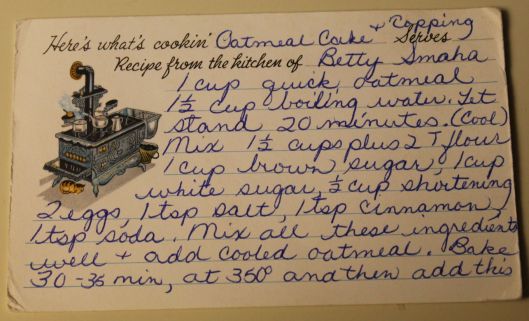 Here's what's cookin' Oatmeal Cake + Topping Serves
Recipe from the kitchen of Betty Smaha
1 cup quick oatmeal
1½ cup boiling water. Let
stand 20 minutes. (Cool)
Mix 1½ cups plus 2 T flour
1 cup brown sugar, 1 cup
white sugar, ½ cup shortening
2 eggs, 1 tsp salt, 1 tsp cinnamon,
1 tsp soda. Mix all these ingredients
well + add cooled oatmeal. Bake
30-35 min, at 350° and then add this